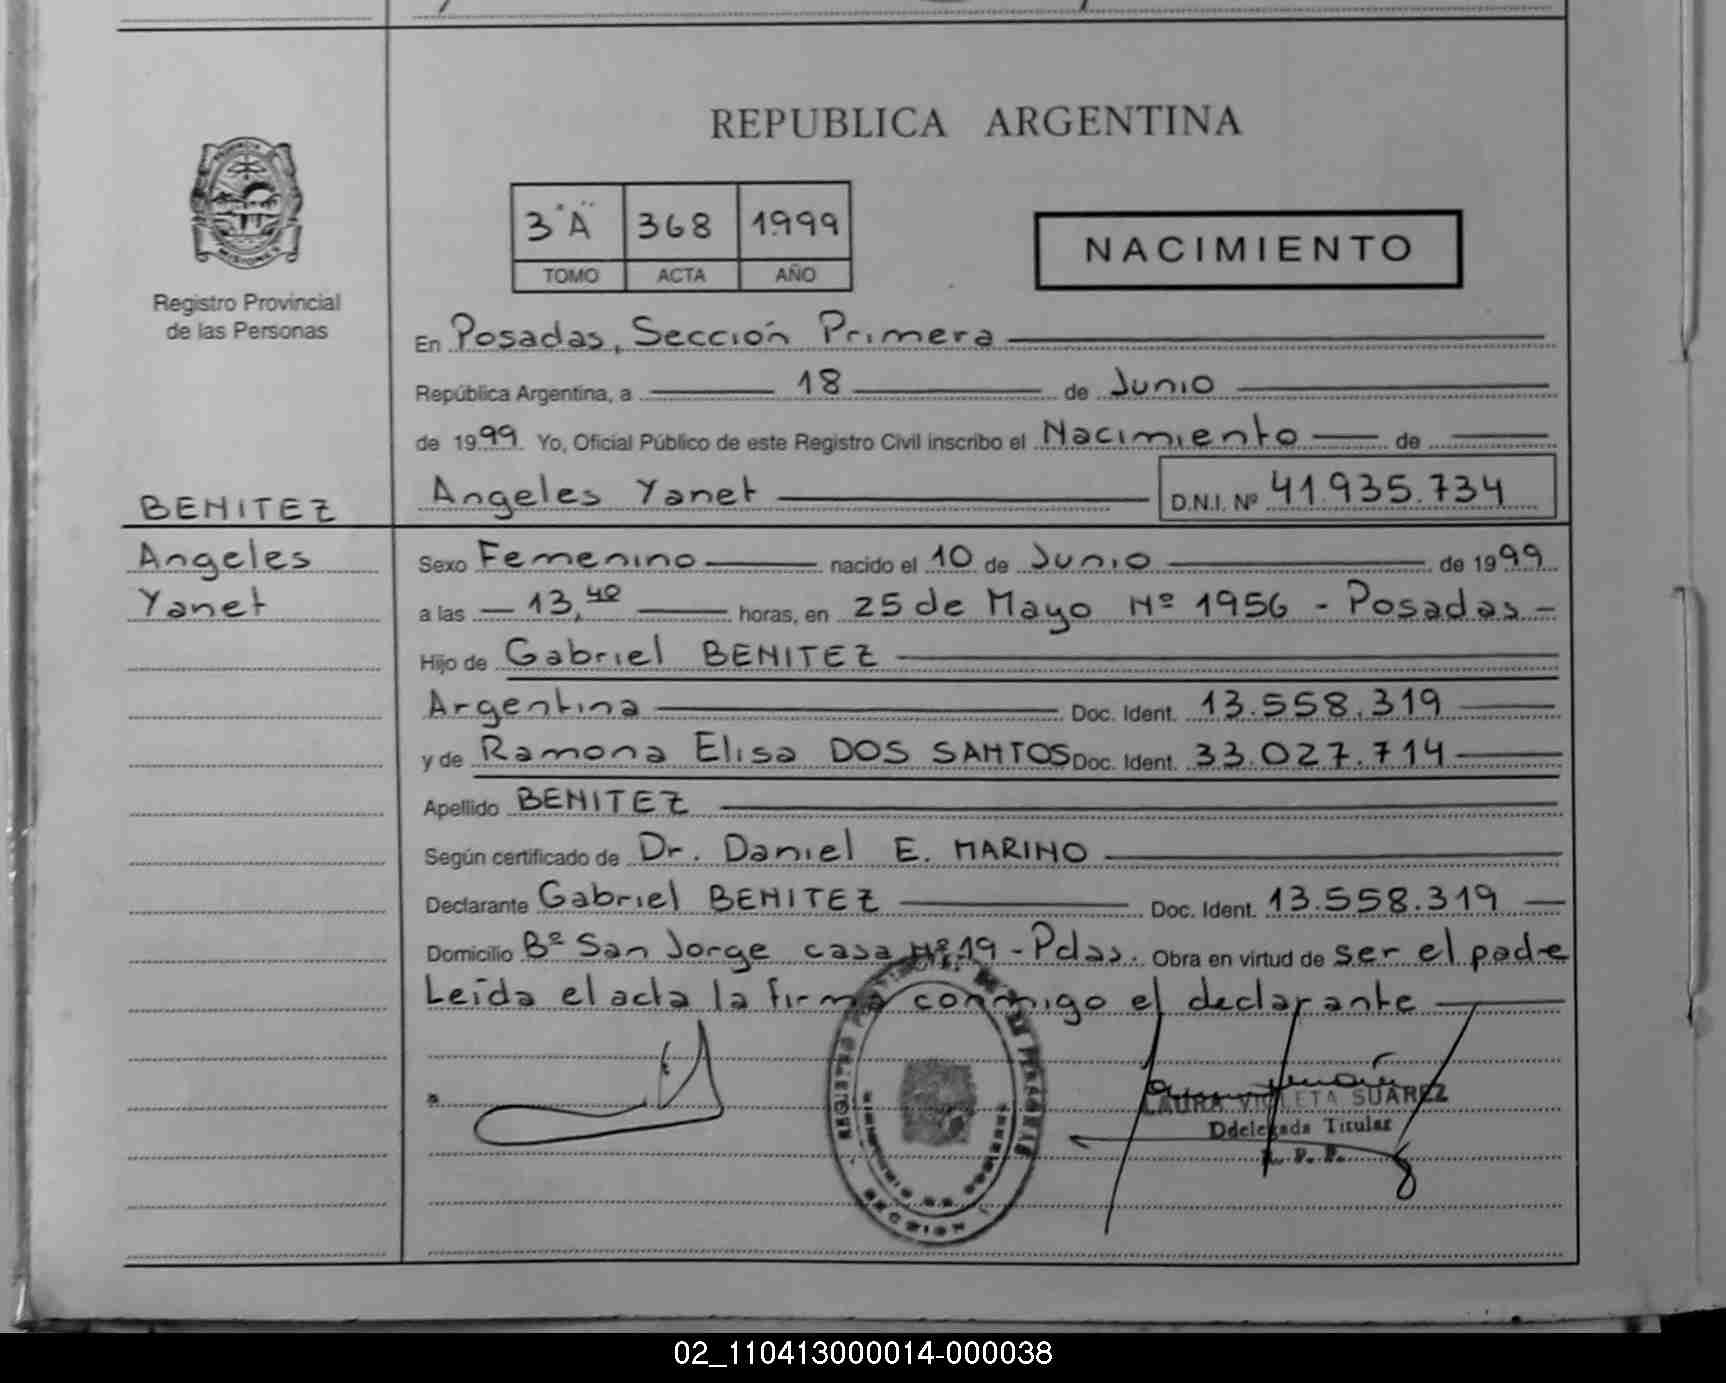 REPUBLICA ARGENTINA
3 "A" 368 1999
TOMO ACTA AÑO
NACIMIENTO
PROVINCIA
MISIONES
Registro Provincial
de las Personas
En Posadas, Sección Primera
República Argentina, a 18 de Junio
de 1999. Yo, Oficial Público de este Registro Civil inscribo el Nacimiento de
Angeles Yanet D.N.I. Nº 41.935.734
BENITEZ
Angeles
Yanet
Sexo Femenino nacido el 10 de Junio de 1999
a las 13,40 horas, en 25 de Mayo Nº 1956 - Posadas -
Hijo de Gabriel BENITEZ
Argentina Doc. Ident. 13.558.319
y de Ramona Elisa DOS SANTOS Doc. Ident. 33.027.714
Apellido BENITEZ
Según certificado de Dr. Daniel E. MARINO
Declarante Gabriel BENITEZ Doc. Ident. 13.558.319
Domicilio Bº San Jorge casa Nº 19 - Pdas. Obra en virtud de ser el padre
Leida el acta la firma conmigo el declarante
REGISTRO DE LAS PERSONAS
SECCION
LAURA VIOLETA SUAREZ
Ddelegada Titular
R. P. P.
02_110413000014-000038